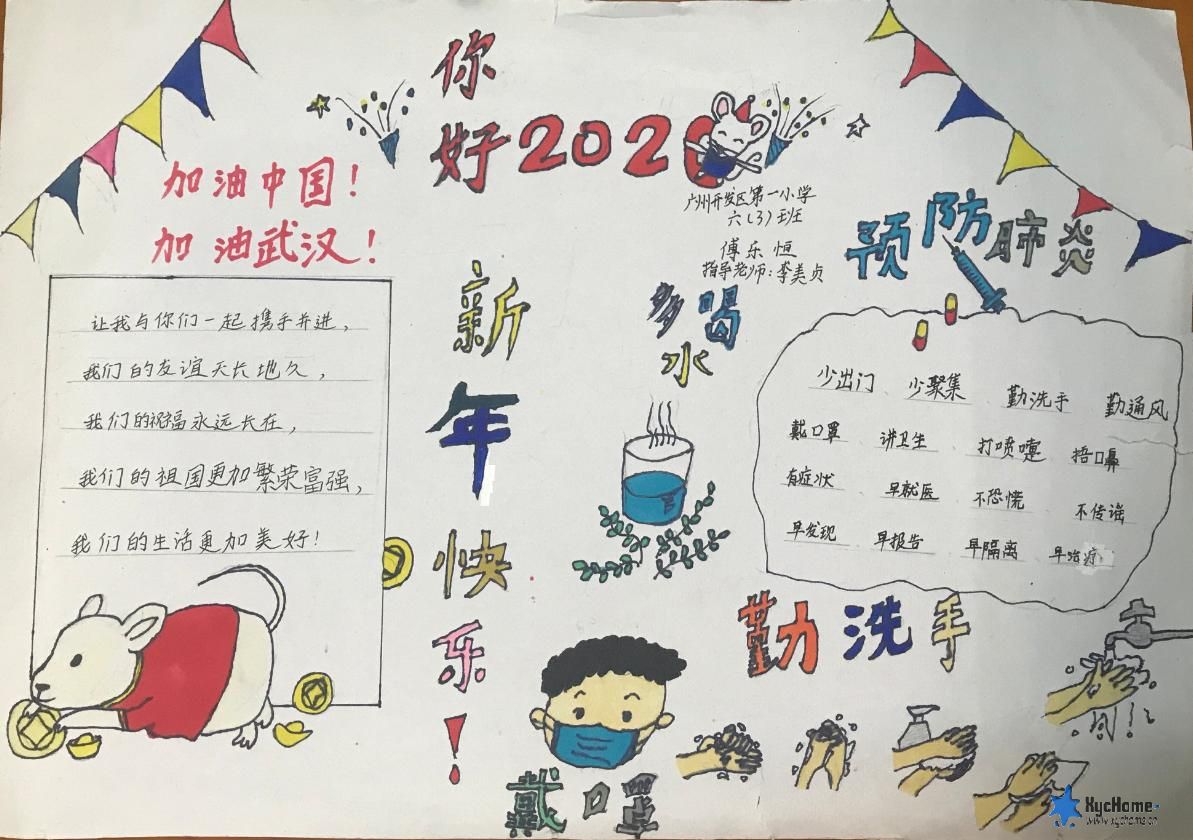 你
好2020
加油中国！
加油武汉！
广州开发区第一小学
六(3)班
傅乐恒
指导老师：李美贞
新
年
快
乐
！
让我与你们一起携手并进，
我们的友谊天长地久，
我们的祝福永远长在，
我们的祖国更加繁荣富强，
我们的生活更加美好！
多喝
水
预防肺炎
少出门、少聚集、勤洗手、勤通风
戴口罩、讲卫生、打喷嚏、捂口鼻
有症状、早就医、不恐慌、不传谣
早发现、早报告、早隔离、早治疗
勤洗手
戴口罩
XycHome
www.xychome.cn